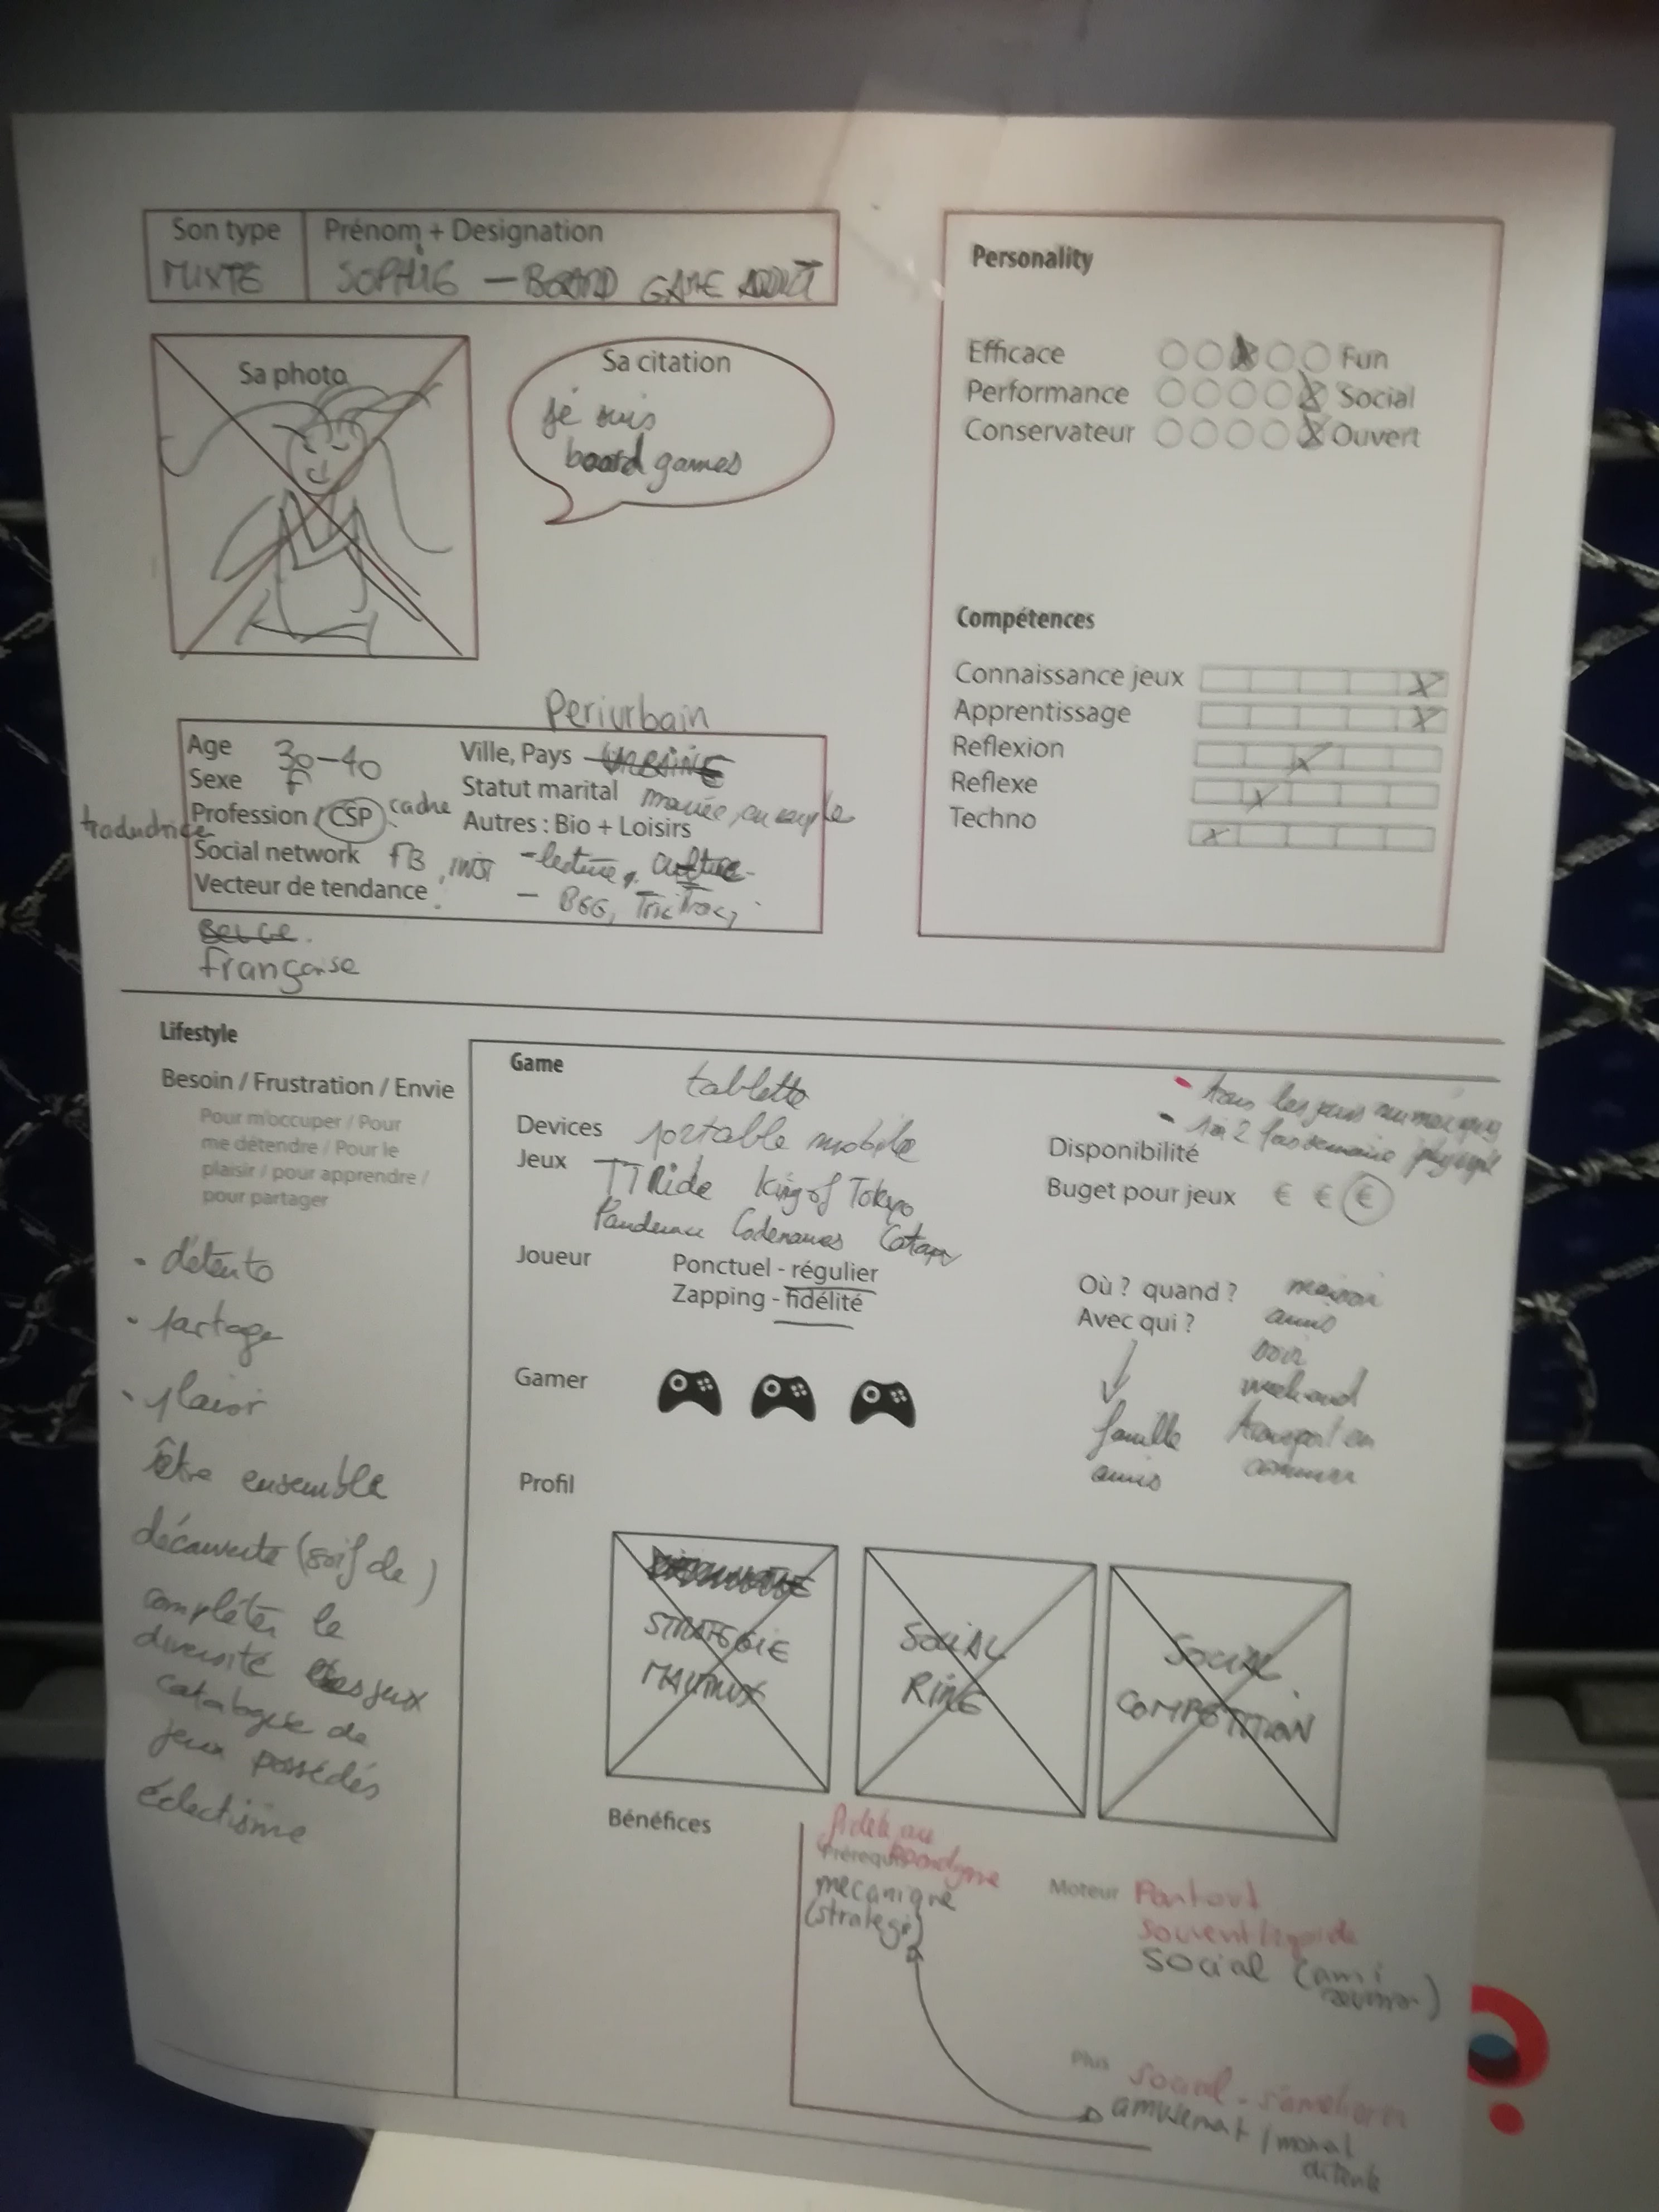 Son type
MIXTE
Prénom + Designation
SOPHIE — BOARD GAME ADDICT
Sa photo
Sa citation
je suis
board games
Personality
Efficace Fun
Performance Social
Conservateur Ouvert
Compétences
Connaissance jeux X
Apprentissage X
Reflexion X
Reflexe X
Techno X
Periurbain
Age 30-40
Sexe F
Profession / CSP cadre
traductrice
Social network FB, inst
Vecteur de tendance :
Ville, Pays URBAINE
Statut marital mariée, en couple
Autres : Bio + Loisirs
- lecture, culture
- BGG, Tric Trac,
BELGE.
française
Lifestyle
Besoin / Frustration / Envie
Pour m'occuper / Pour
me détendre / Pour le
plaisir / pour apprendre /
pour partager
• détente
• partage
• plaisir
être ensemble
découverte (soif de)
compléter le
diversité des jeux
catalogue de
jeux possédés
éclectisme
Game
tablette
Devices portable mobile
Jeux TTRide King of Tokyo
Pandemic Codenames Catan
Joueur Ponctuel - régulier
Zapping - fidélité
Gamer
Profil
• tous les jours numériques
• 1 à 2 fois semaine physique
Disponibilité
Buget pour jeux € € €
Où ? quand ? maison
Avec qui ? amis
soir
weekend
famille transport en
amis commun
STRATEGIE
MALIN
SOCIAL
RIRE
SOCIAL
COMPETITION
Bénéfices
Fidèle au
Prérequis
mecanique
(strategi)
Moteur Partout
souvent
social (ami
reunion)
Plus social - s'améliorer
amusement / moral
détente